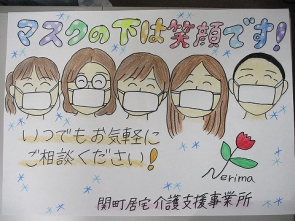 マスクの下は笑顔です!
いつでもお気軽に
ご相談ください!
Nerima
関町居宅介護支援事業所